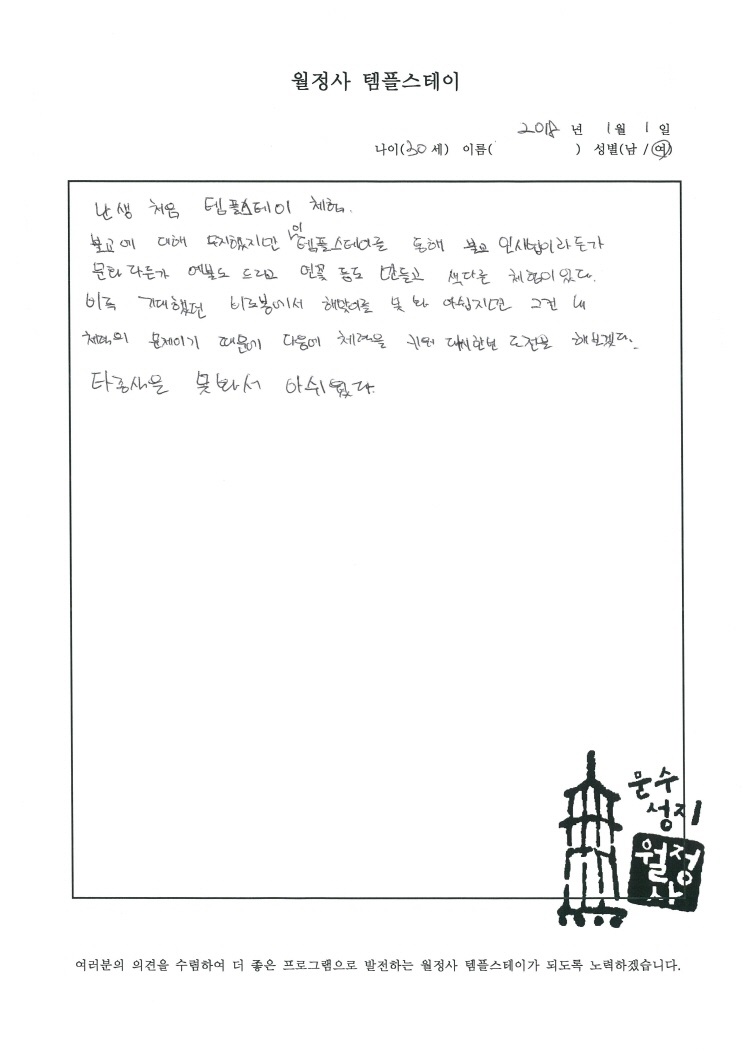 월정사 템플스테이
2018 년 1월 1일
나이(30세) 이름( ) 성별(남/여)
난생 처음 템플스테이 체험.
불교에 대해 무지했지만 이 템플스테이를 통해 불교 인사법이라든가
문화라든가 예불도 드리고 연꽃 등도 만들고 색다른 체험이었다.
비록 기대했던 비로봉에서 해맞이를 못 봐 아쉽지만 그건 내
체력의 문제이기 때문에 다음에 체력을 키워 다시한번 도전을 해보겠다.
타종식을 못봐서 아쉬웠다.
문수
성지
월정
사
여러분의 의견을 수렴하여 더 좋은 프로그램으로 발전하는 월정사 템플스테이가 되도록 노력하겠습니다.